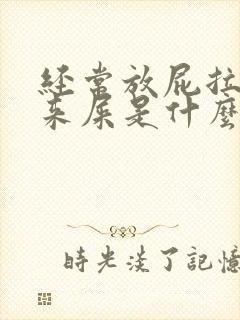 經常放屁拉
來屎是什麼
時光淡了記憶